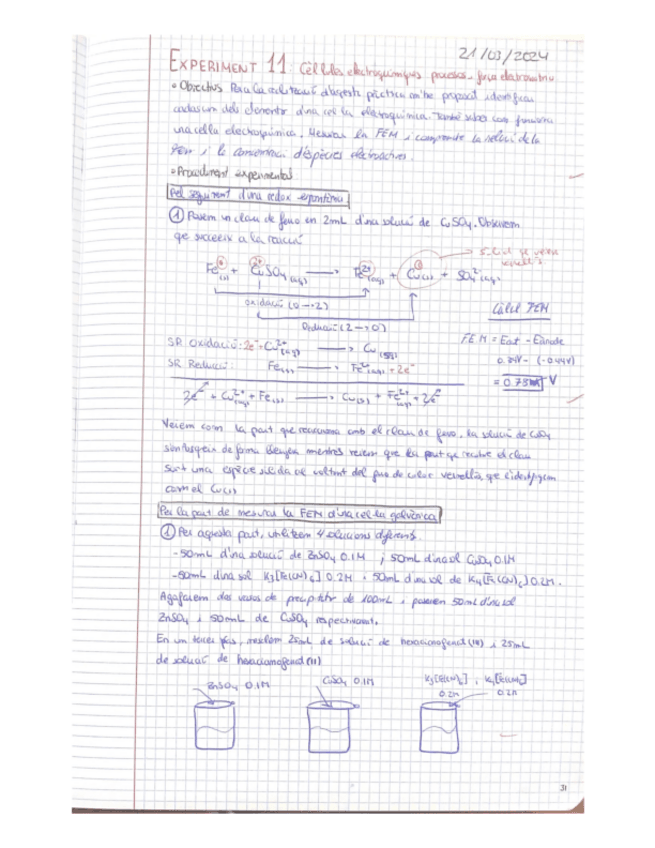 21/03/2024
EXPERIMENT 11: Cèl·lules electroquímiques processos - força electromotriu
• Objectius Per a la realització d'aquesta pràctica m'he proposat identificar
cadascun dels elements d'una cel·la electroquímica. També saber com funciona
una cel·la electroquímica. Mesurar la FEM i comprovar la relació de la
FEM i la concentració d'espècies electroactives.
• Procediment experimental
Pel seguiment d'una redox espontània
① Posem un clau de ferro en 2mL d'una solució de CuSO4. Observem
que succeeix a la reacció
Sòlid de color vermellós
Fe(s) + CuSO4(aq) → Fe2+(aq) + Cu(s) + SO4 2-(aq)
oxidació (0→2)
Reducció (2→0)
Càlcul FEM
SR Oxidació: 2e- + Cu2+(aq) → Cu(s)
FEM = Ecat - Eànode
SR Reducció: Fe(s) → Fe2+(aq) + 2e-
0.34V - (-0.44V)
= 0.78 V
2e- + Cu2+(aq) + Fe(s) → Cu(s) + Fe2+(aq) + 2e-
Veiem com la part que reacciona amb el clau de ferro, la solució de CuSO4
de forma mentres veiem que la part que recobre el clau
surt una espècie sòlida al voltant del de color vermellós, que s'identifica
com el Cu(s)
Per la part de mesurar la FEM d'una cel·la galvànica
① Per aquesta part, utilitzem 4 solucions diferents.
- 50mL d'una solució de ZnSO4 0.1M ; 50mL d'una sol CuSO4 0.1M
- 50mL d'una sol K3[Fe(CN)6] 0.2M i 50mL d'una sol de K4[Fe(CN)6] 0.2M.
Agafarem dos vasos de precipitats de 100mL i posarem 50mL d'una sol
ZnSO4 i 50mL de CuSO4 respectivament.
En un tercer vas, mesclem 25mL de solució de hexacianoferrat(III) i 25mL
de solució de hexacianoferrat(II)
ZnSO4 0.1M
CuSO4 0.1M
K3[Fe(CN)6] i K4[Fe(CN)6]
0.2M
0.2M
31